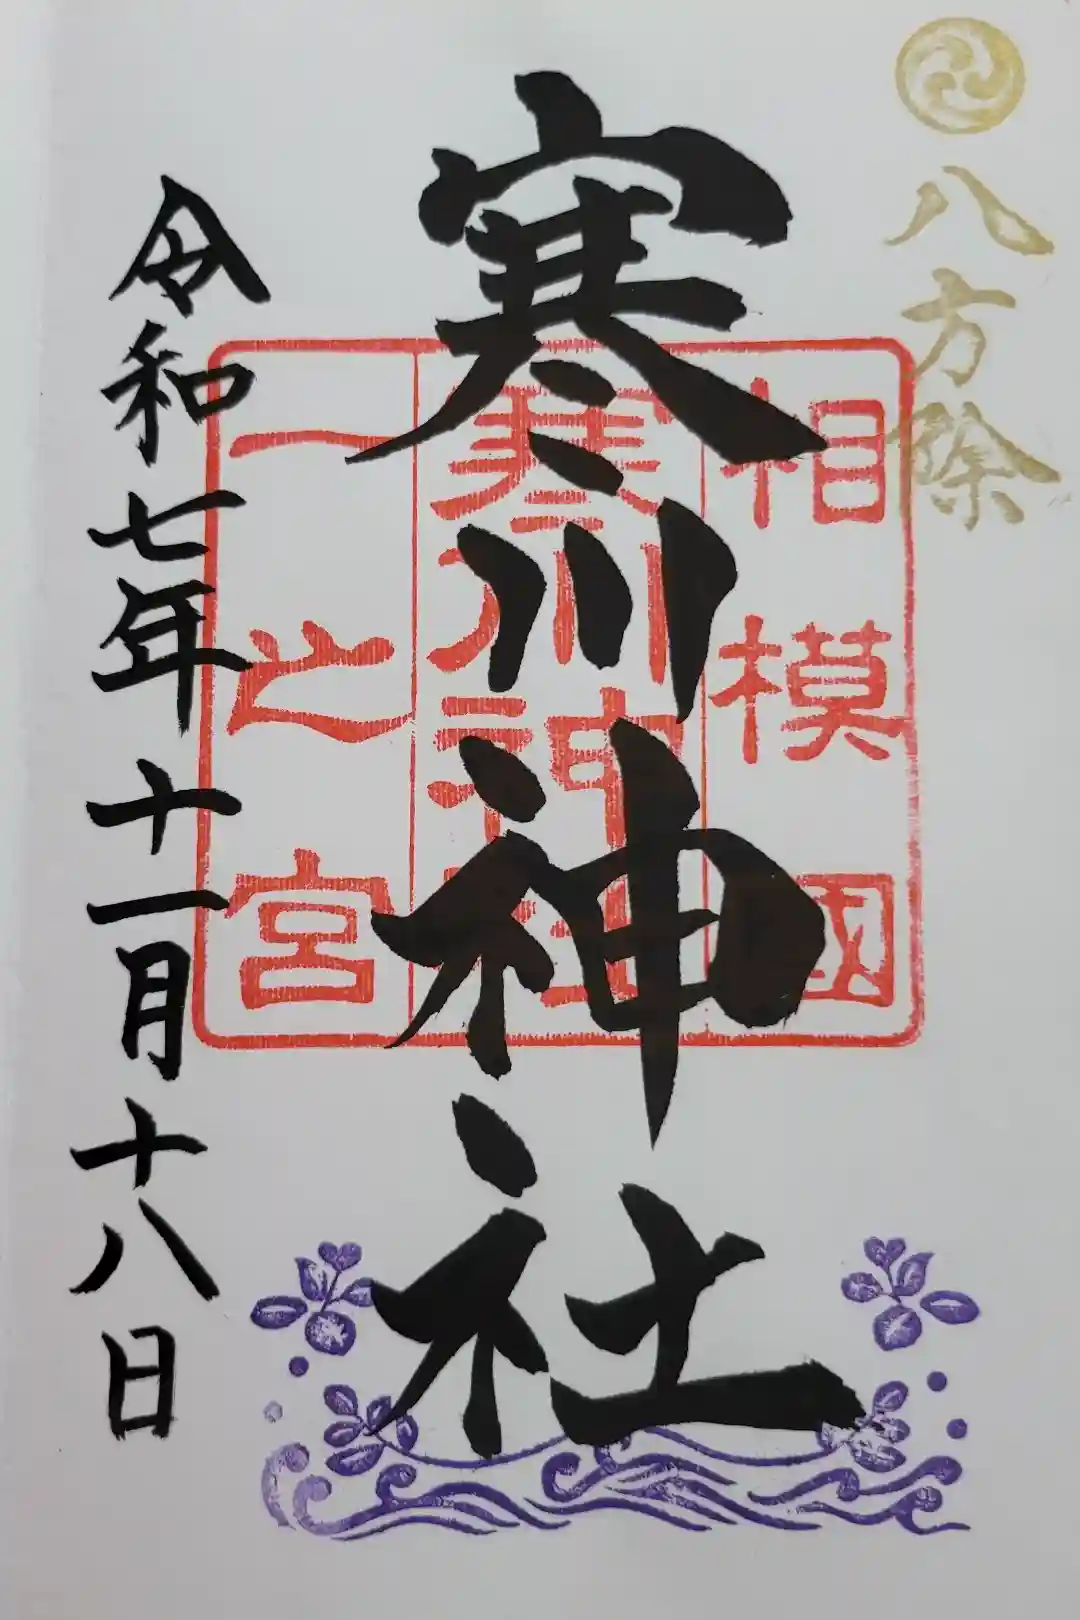 八方除
相模國
寒川神社
寒川神社
一之宮
令和七年十一月十八日